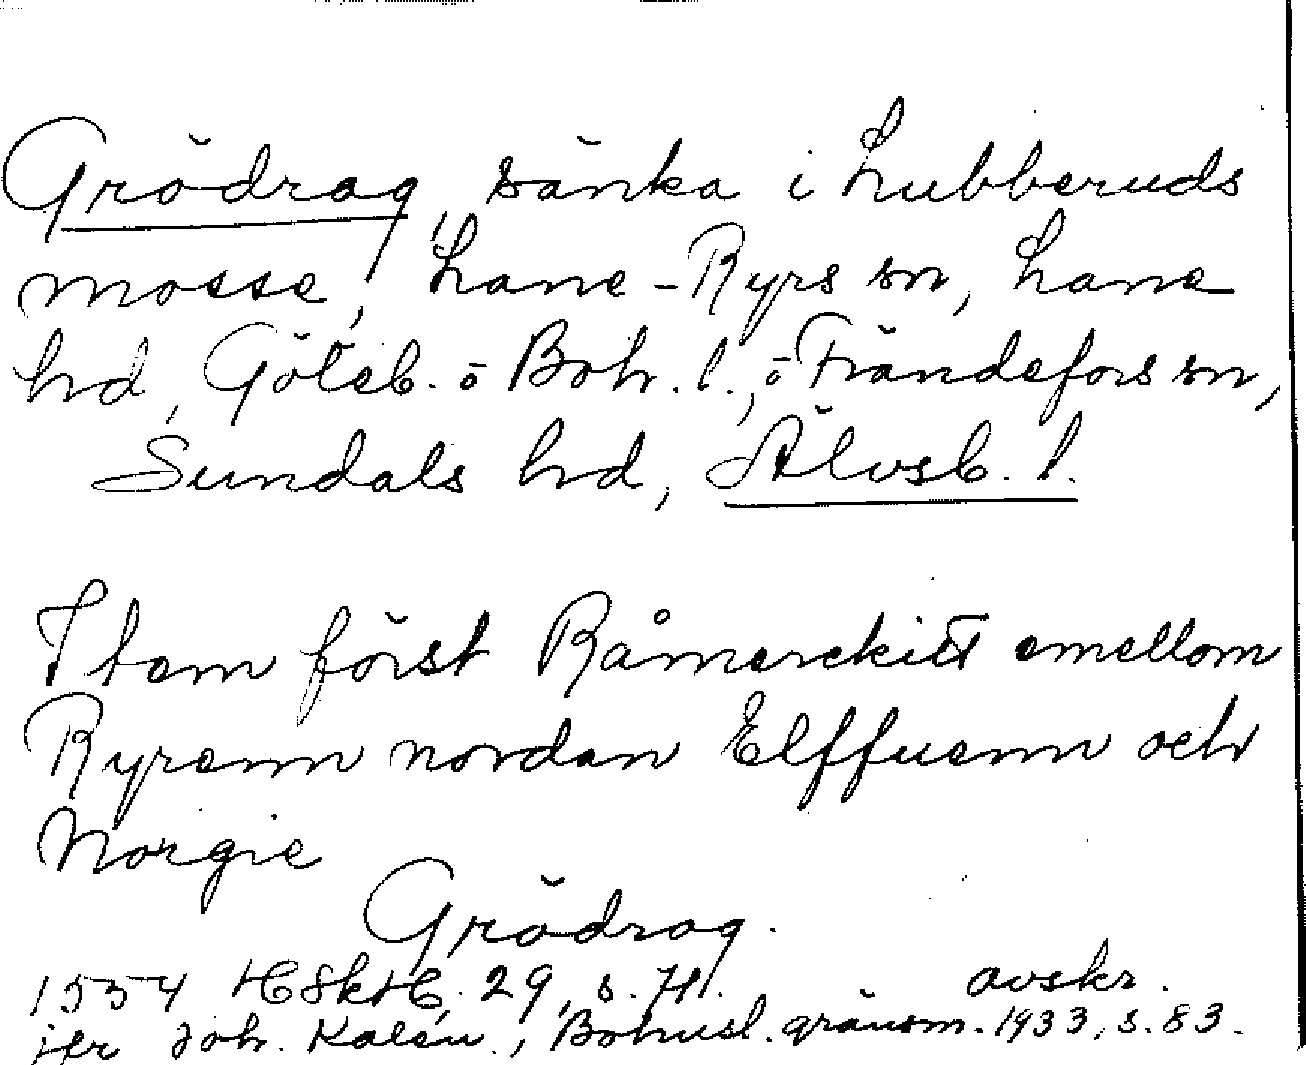 Grödrag, sänka i Lubberuds
mosse, Lane-Ryrs sn, Lane
hd, Göteb. o Boh. l., o Frändefors sn,
Sundals hd, Älvsb. l.
Item först Råmerckitt emellom
Ryrenn nordan Elffuenn och
Norgie
Grödrag.
1554 HSkH, 29, s. 71. avskr.
jfr Joh. Kalén, Bohusl. gränsm. 1933, s. 83.